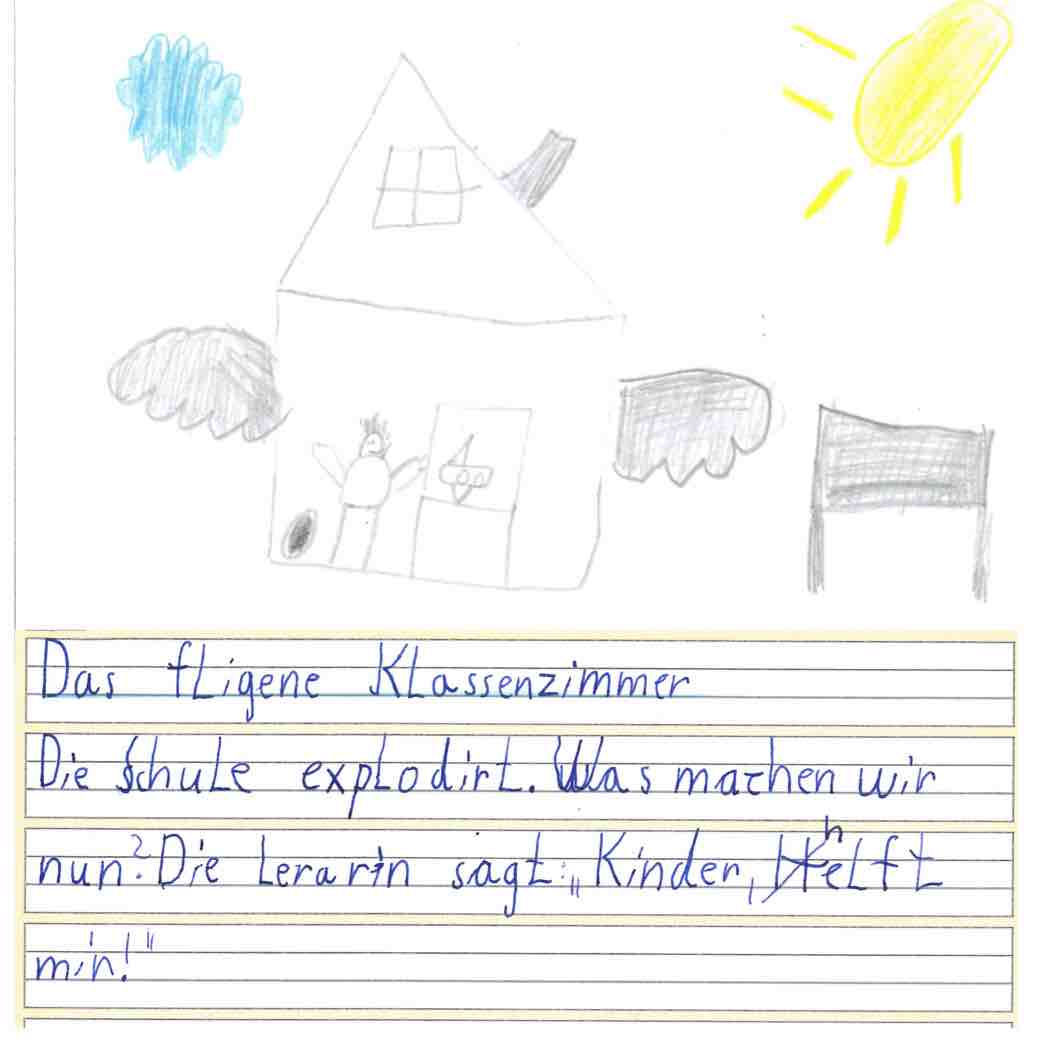 Das fligene Klassenzimmer
Die Schule explodirt. Was machen wir
nun? Die Lerarin sagt: „Kinder, helft
min!"